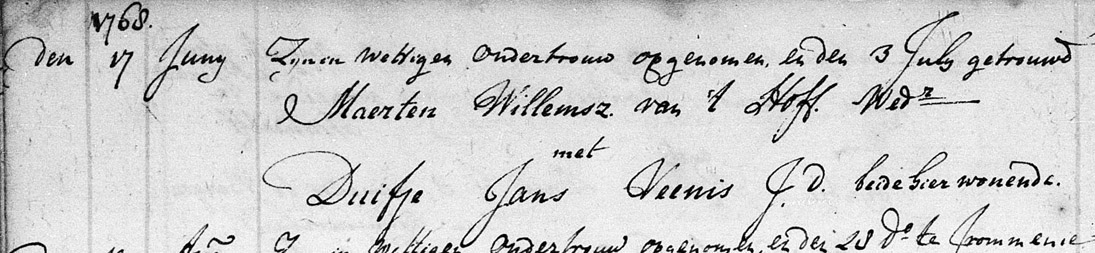 1768.
den 17 Juny Zyn in wettigen ondertrouw opgenomen, en den 3 July getrouwd
Maerten Willemsz. van 't Hoff. Wedr
met
Duifje Jans Veenis J. d. beide hier wonende.
Zyn in wettigen ondertrouw opgenomen, en den 28 do te Crommenie